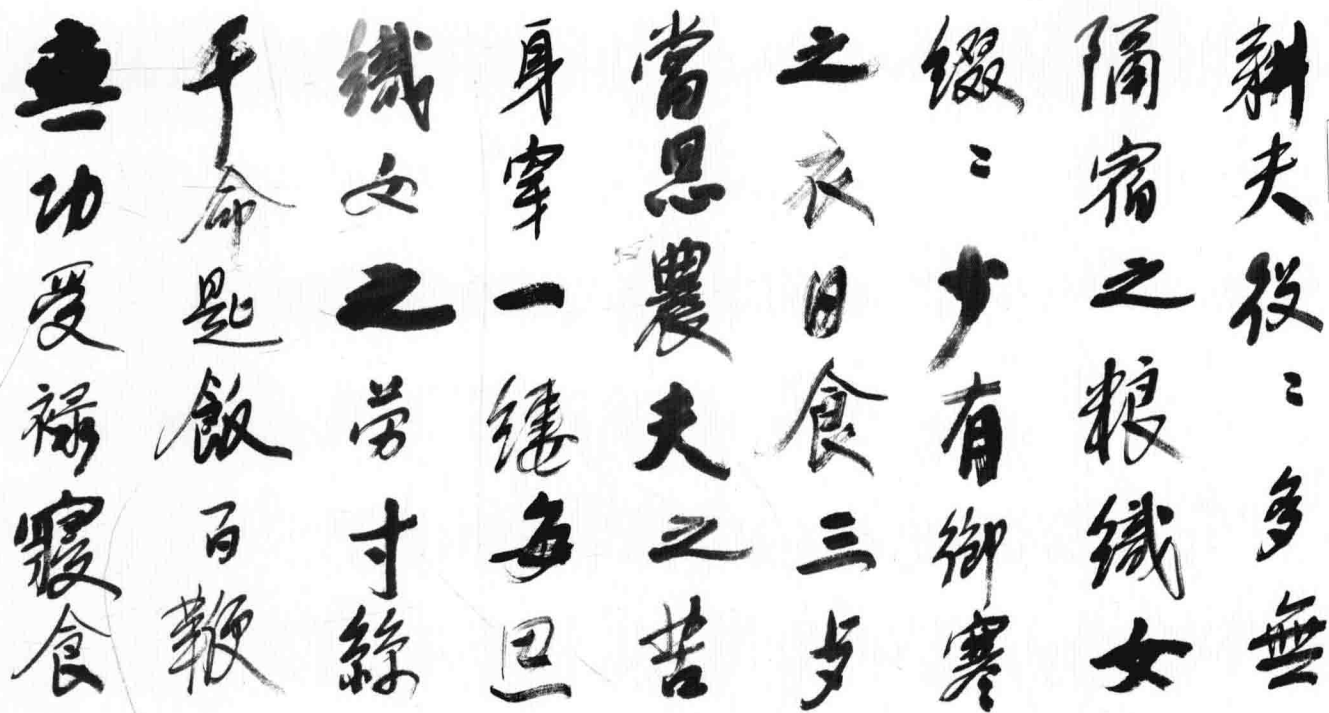 耕夫役〻多無
隔宿之粮織女
綴〻少有御寒
之衣日食三歺
當思農夫之苦
身穿一縷每思
織女之劳寸絲
千命匙飯百鞭
無功受禄寢食